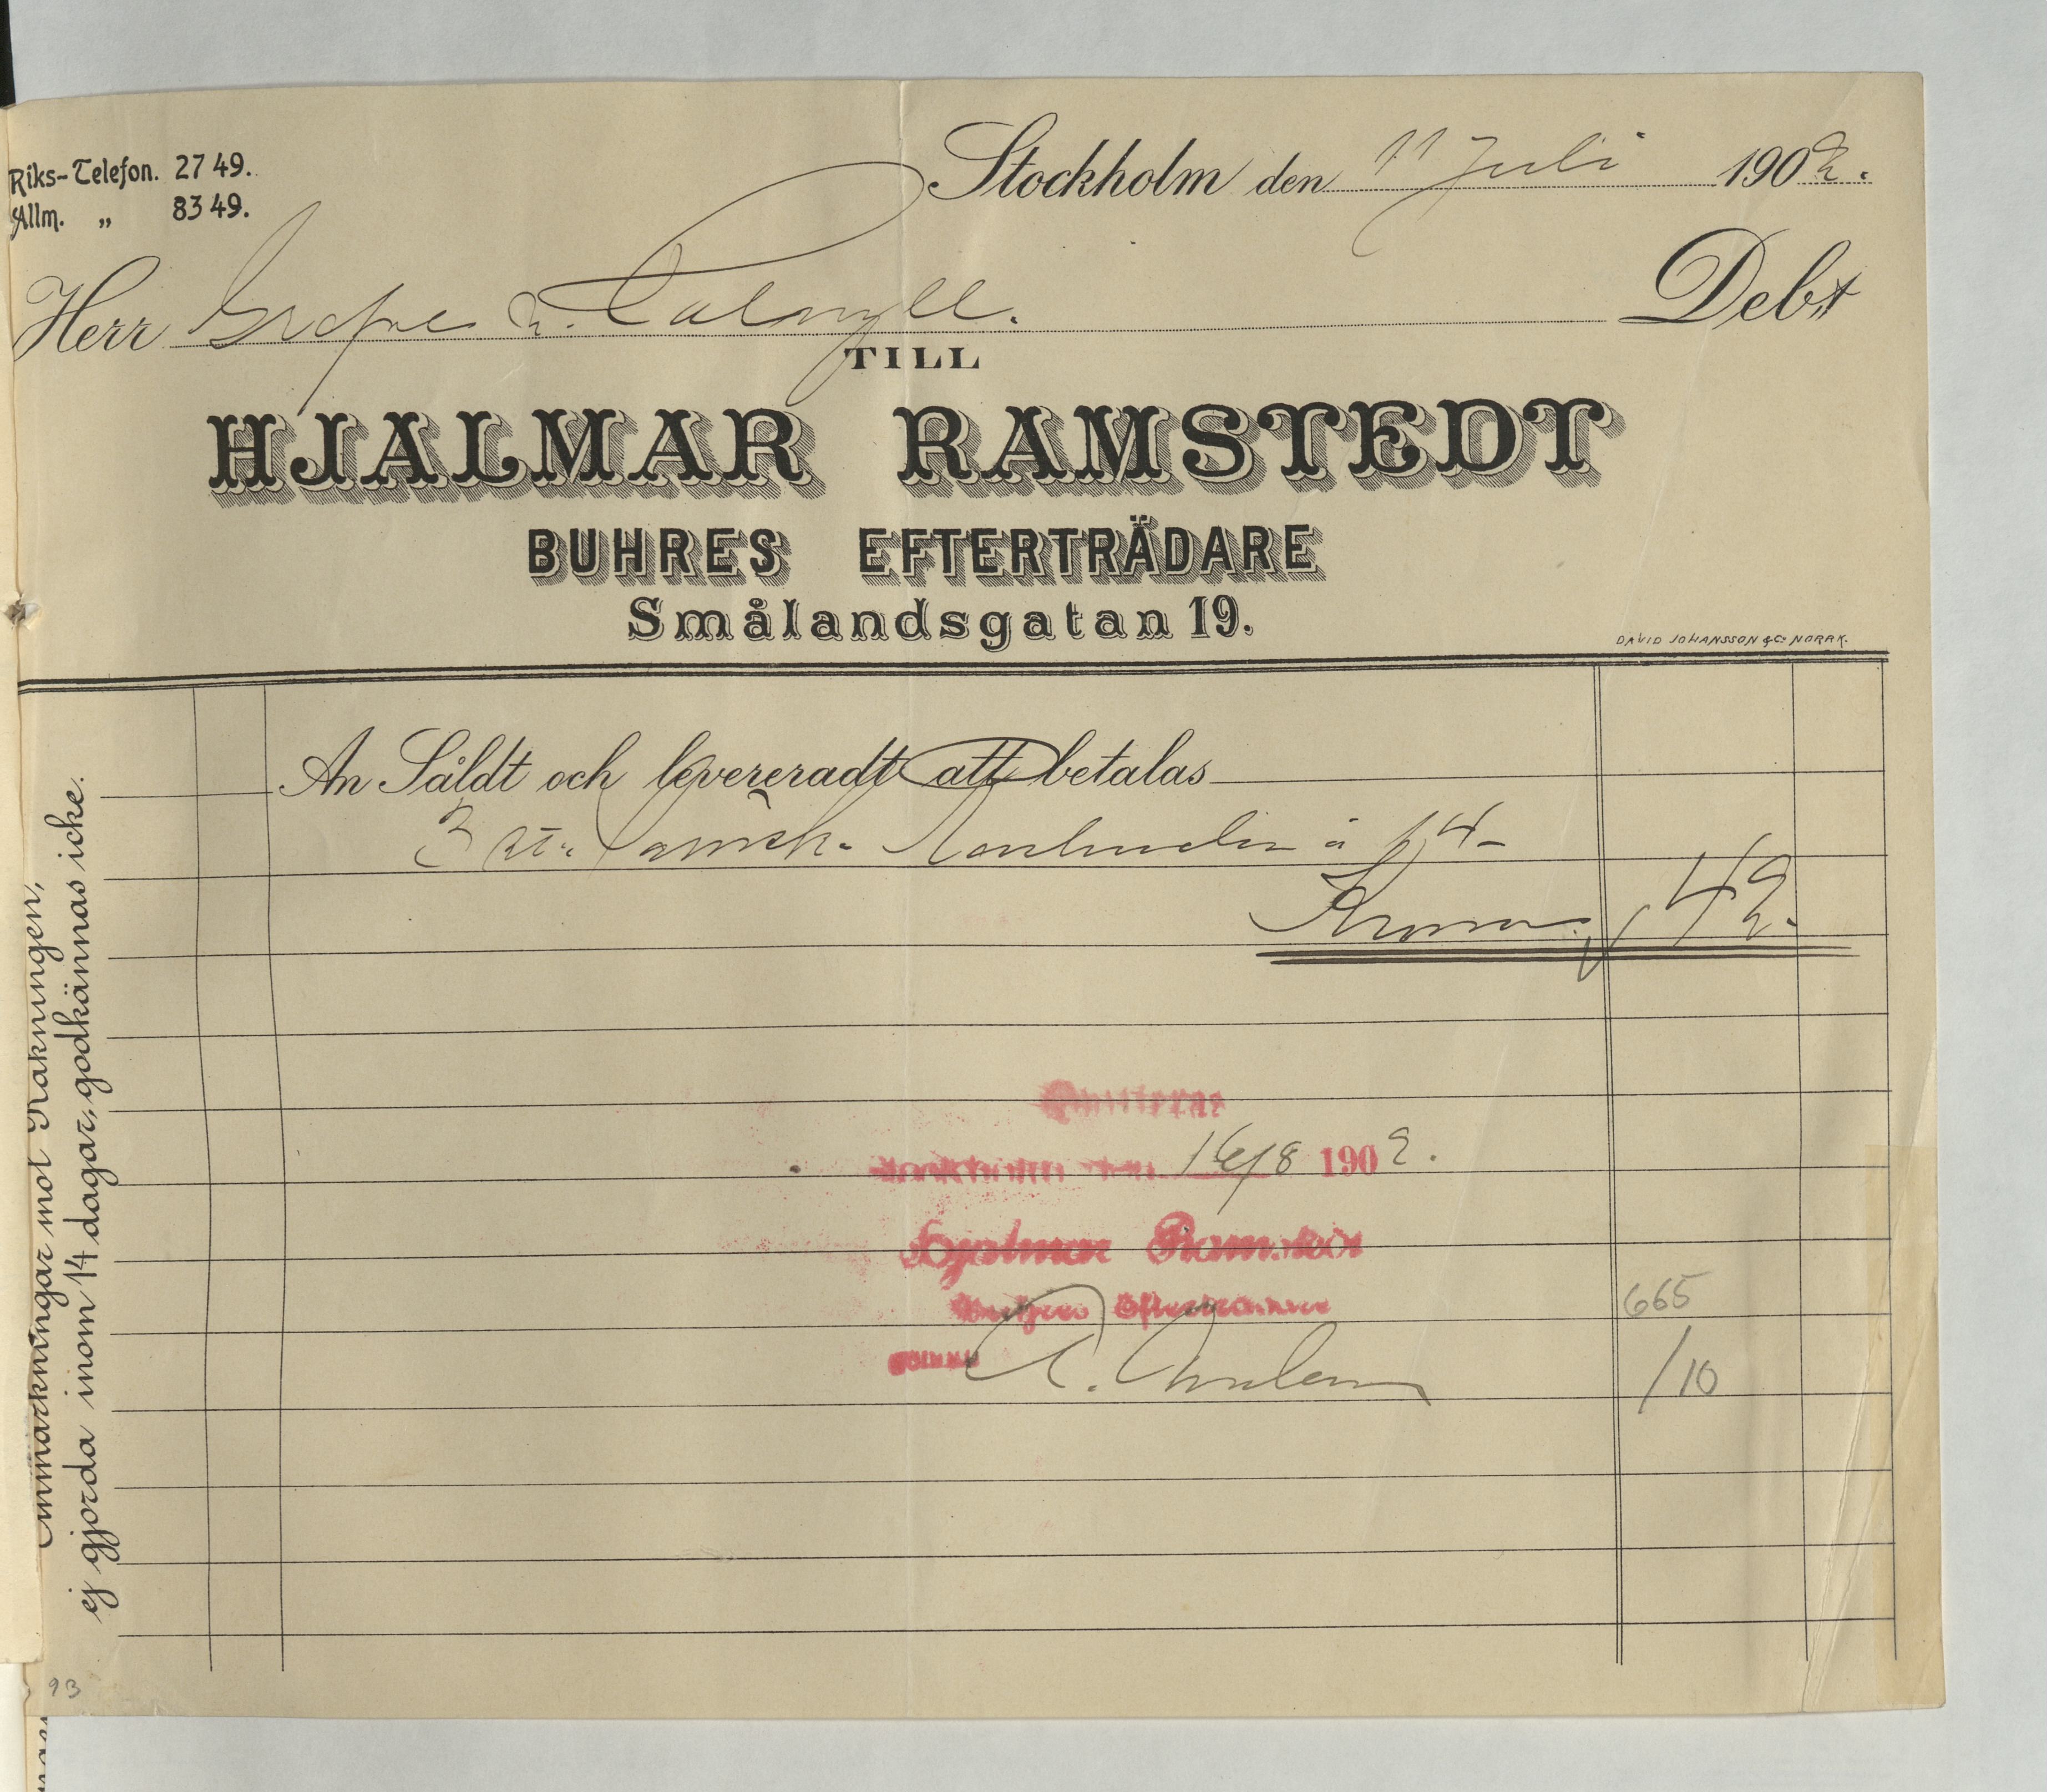 Riks-Telefon. 27 49.
Allm. „ 83 49.
Stockholm den 11 Juli 1902.
Herr Grefve v. Debt
TILL
HJALMAR RAMSTEDT
BUHRES EFTERTRÄDARE
Smålandsgatan 19.
DAVID JOHANSSON & Co NORRK.
An Såldt och levereradt att betalas
3 st. à 14-
Kronor 42.
Anmärkningar mot Räkningen,
ej gjorda inom 14 dagar, godkännas icke.
Qvitteras
Stockholm den 16/8 1902.
Hjalmar Ramstedt
Efterträdare
665
/10
93